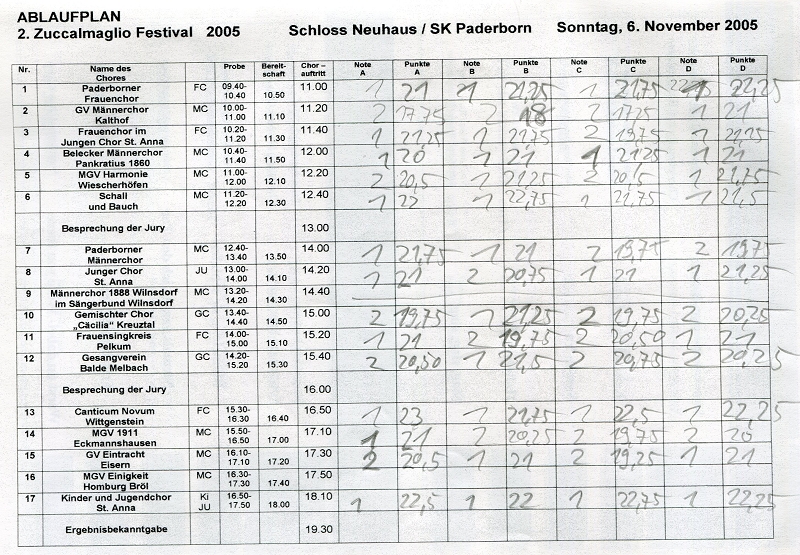 ABLAUFPLAN
2. Zuccalmaglio Festival 2005 Schloss Neuhaus / SK Paderborn Sonntag, 6. November 2005
Nr. Name des Chores Probe Bereit-schaft Chor – auftritt Note A Punkte A Note B Punkte B Note C Punkte C Note D Punkte D
1 Paderborner Frauenchor FC 09.40-10.40 10.50 11.00 1 21 1 21,25 1 21,75 1 22,25
2 GV Männerchor Kalthof MC 10.00-11.00 11.10 11.20 2 17,75 2 18 1 17,25 1 21
3 Frauenchor im Jungen Chor St. Anna FC 10.20-11.20 11.30 11.40 1 21,25 1 21,75 2 19,75 1 21,25
4 Belecker Männerchor Pankratius 1860 MC 10.40-11.40 11.50 12.00 1 20 1 21 1 21,25 1 21
5 MGV Harmonie Wiescherhöfen MC 11.00-12.00 12.10 12.20 2 20,5 1 21,25 2 20,5 1 21,75
6 Schall und Bauch MC 11.20-12.20 12.30 12.40 1 22 1 22,75 1 21,75 1 21,5
Besprechung der Jury 13.00
7 Paderborner Männerchor MC 12.40-13.40 13.50 14.00 1 21,75 1 21 2 19,75 2 19,75
8 Junger Chor St. Anna JU 13.00-14.00 14.10 14.20 1 21 2 20,75 1 21 1 21,25
9 Männerchor 1888 Wilnsdorf im Sängerbund Wilnsdorf MC 13.20-14.20 14.30 14.40
10 Gemischter Chor „Cäcilia" Kreuztal GC 13.40-14.40 14.50 15.00 2 19,75 1 21,25 2 19,75 2 20,25
11 Frauensingkreis Pelkum FC 14.00-15.00 15.10 15.20 1 21 2 19,75 2 20,50 1 21
12 Gesangverein Balde Melbach GC 14.20-15.20 15.30 15.40 2 20,50 1 21,5 2 20,75 2 20,25
Besprechung der Jury 16.00
13 Canticum Novum Wittgenstein FC 15.30-16.30 16.40 16.50 1 23 1 21,75 1 22,5 1 22,25
14 MGV 1911 Eckmannshausen MC 15.50-16.50 17.00 17.10 1 21 2 20,25 2 19,75 2 20
15 GV Eintracht Eisern MC 16.10-17.10 17.20 17.30 2 20,5 1 21 2 19,25 1 21
16 MGV Einigkeit Homburg Bröl MC 16.30-17.30 17.40 17.50
17 Kinder und Jugendchor St. Anna Ki JU 16.50-17.50 18.00 18.10 1 22,5 1 22 1 22,75 1 22,25
Ergebnisbekanntgabe 19.30